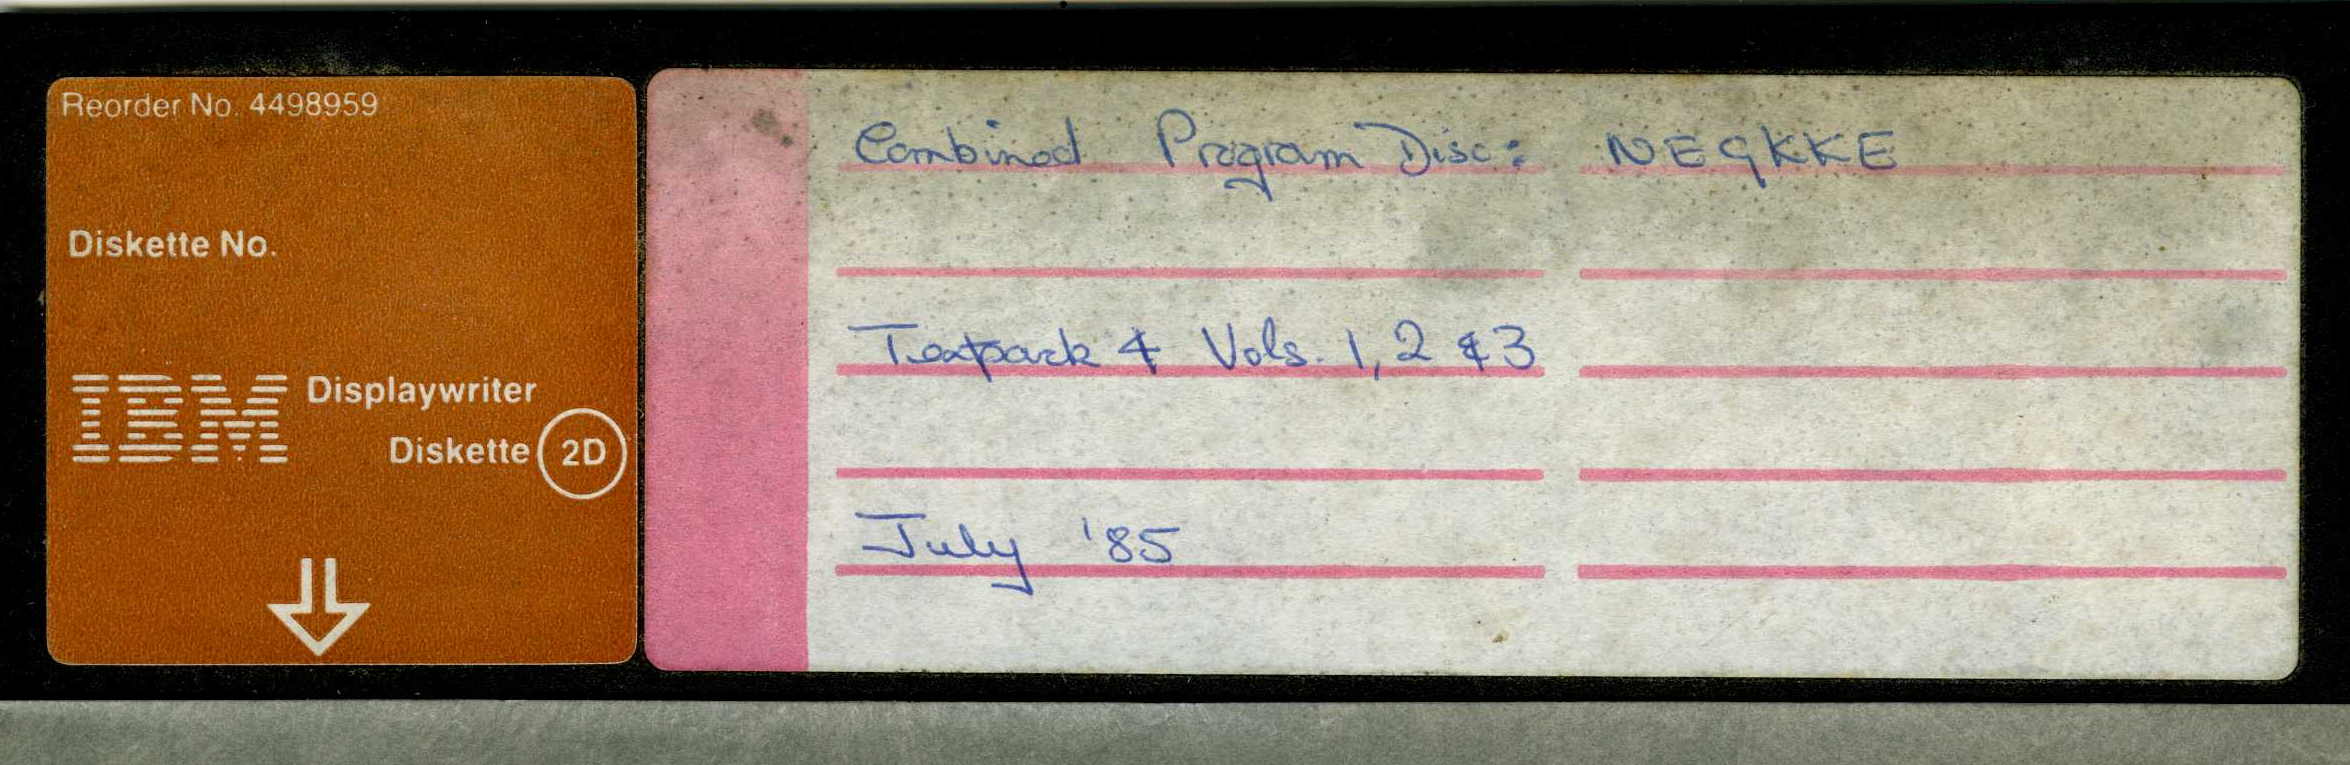 Reorder No. 4498959
Diskette No.
IBM Displaywriter
Diskette 2D
Combined Program Disc: NEQKKE
Textpack 4 Vols. 1, 2 & 3
July '85